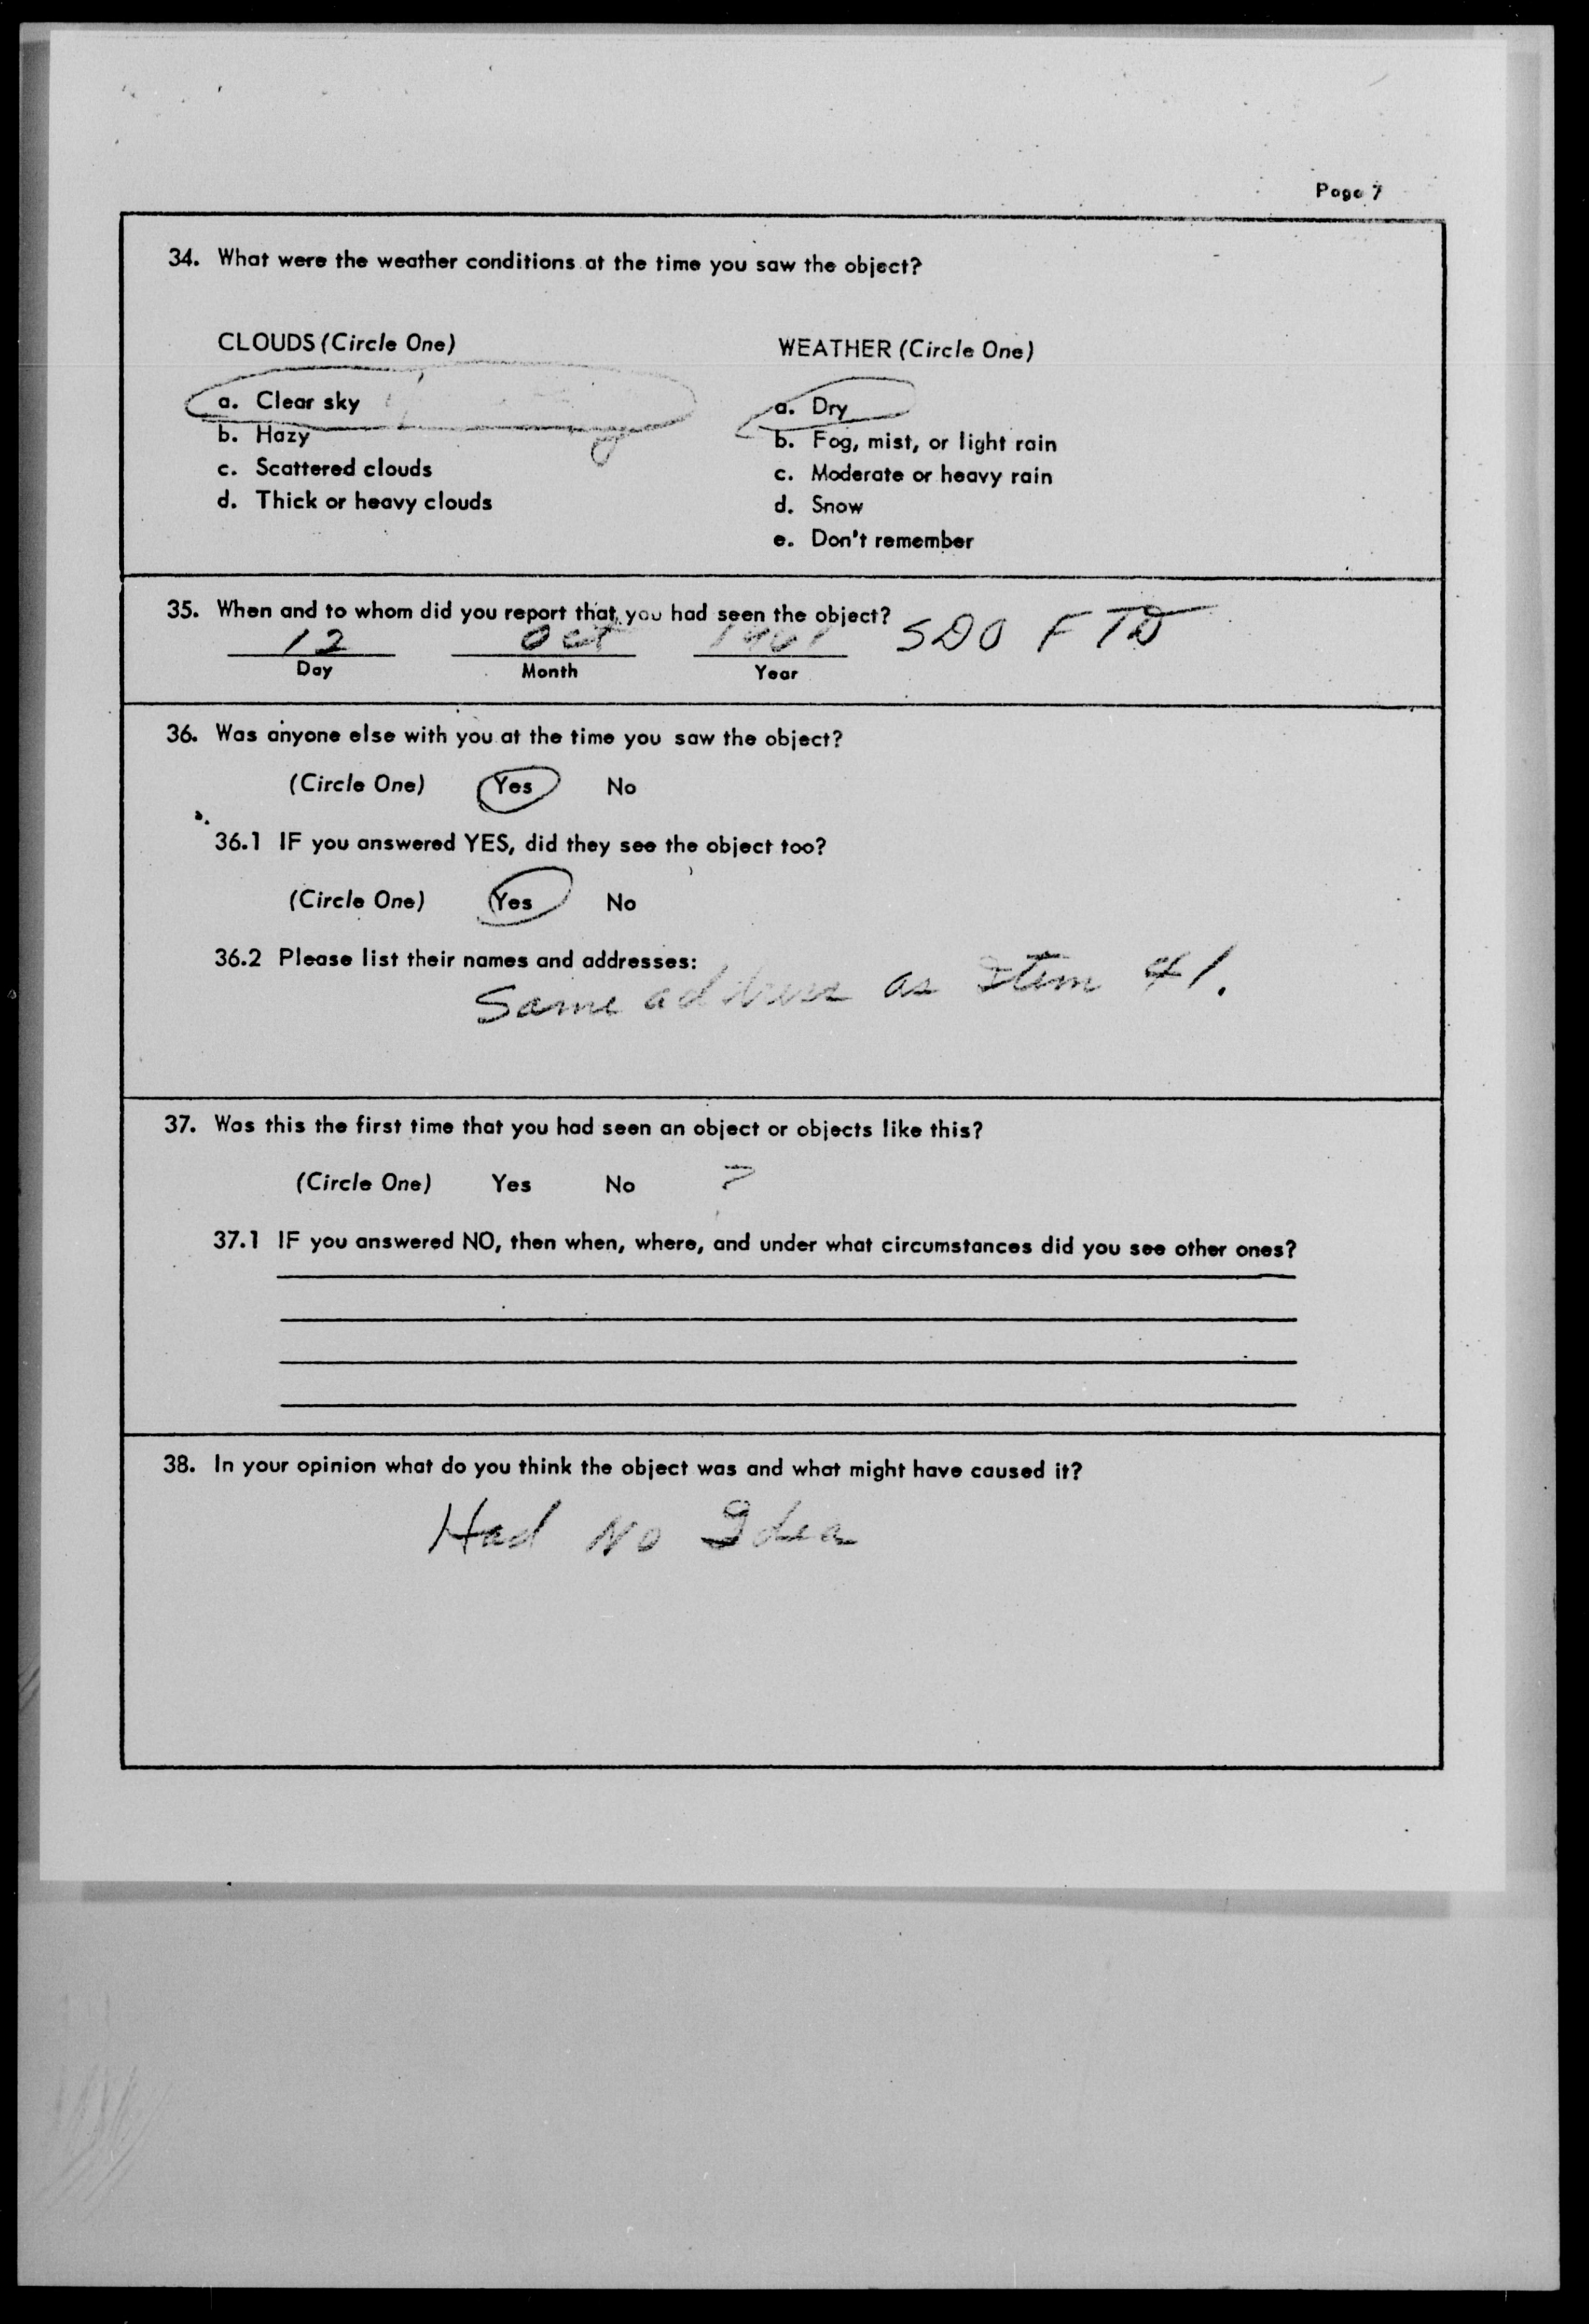 Page 7
34. What were the weather conditions at the time you saw the object?
CLOUDS (Circle One)
a. Clear sky
b. Hazy
c. Scattered clouds
d. Thick or heavy clouds
WEATHER (Circle One)
a. Dry
b. Fog, mist, or light rain
c. Moderate or heavy rain
d. Snow
e. Don't remember
35. When and to whom did you report that you had seen the object?
12 Oct 1961 SDO FTD
Day Month Year
36. Was anyone else with you at the time you saw the object?
(Circle One) Yes No
36.1 IF you answered YES, did they see the object too?
(Circle One) Yes No
36.2 Please list their names and addresses:
Same address as Item 41.
37. Was this the first time that you had seen an object or objects like this?
(Circle One) Yes No ?
37.1 IF you answered NO, then when, where, and under what circumstances did you see other ones?
38. In your opinion what do you think the object was and what might have caused it?
Had No Idea